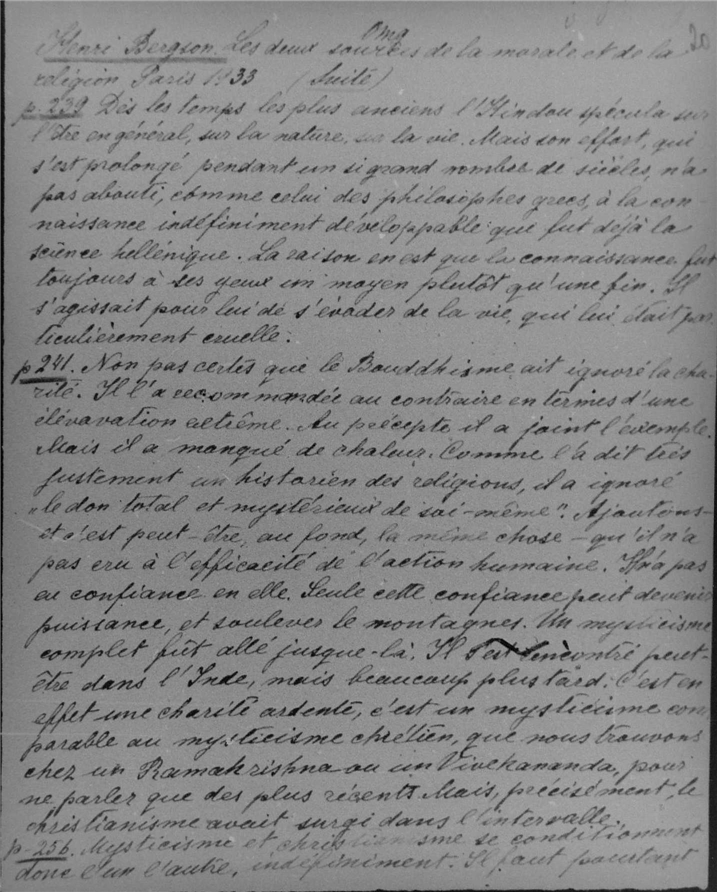 Oma
20
Henri Bergson. Les deux sources de la morale et de la
religion Paris 1933 (Suite)
p. 239 Dès les temps les plus anciens l'Hindou spécula sur
l'être en général, sur la nature, sur la vie. Mais son effort, qui
s'est prolongé pendant un si grand nombre de siècles, n'a
pas abouti, comme celui des philosophes grecs, à la con-
naissance indéfiniment développable que fut déjà la
science hellénique. La raison en est que la connaissance fut
toujours à ses yeux un moyen plutôt qu'une fin. Il
s'agissait pour lui de s'évader de la vie, qui lui était par
ticulièrement cruelle.
p 241. Non pas certes que le Bouddhisme ait ignoré la cha-
rité. Il l'a recommandée au contraire en termes d'une
élévavation extrême. Au précepte il a joint l'éxemple.
Mais il a manqué de chaleur. Comme l'a dit très
justement un historien des religions, il a ignoré
„le don total et mystérieux de soi-même". Ajoutons-
et c'est peut-être, au fond, la même chose – qu'il n'a
pas cru à l'efficacité de l'action humaine. Il n'a pas
eu confiance en elle. Seule cette confiance peut devenir
puissance, et soulever le montagnes. Un mysticisme
complet fût allé jusque-là. Il s'est rencontré peut-
être dans l'Inde, mais beaucoup plus tard. C'est en
effet une charité ardente, c'est un mysticisme com
parable au mysticisme chrétien, que nous trouvons
chez un Ramakrishna ou un Vivekananda, pour
ne parler que des plus récents. Mais, précisément, le
christianisme avait surgi dans l'intervalle.
p. 256. Mysticisme et christianisme se conditionnent
donc l'un l'autre, indéfiniment. Il faut pourtant